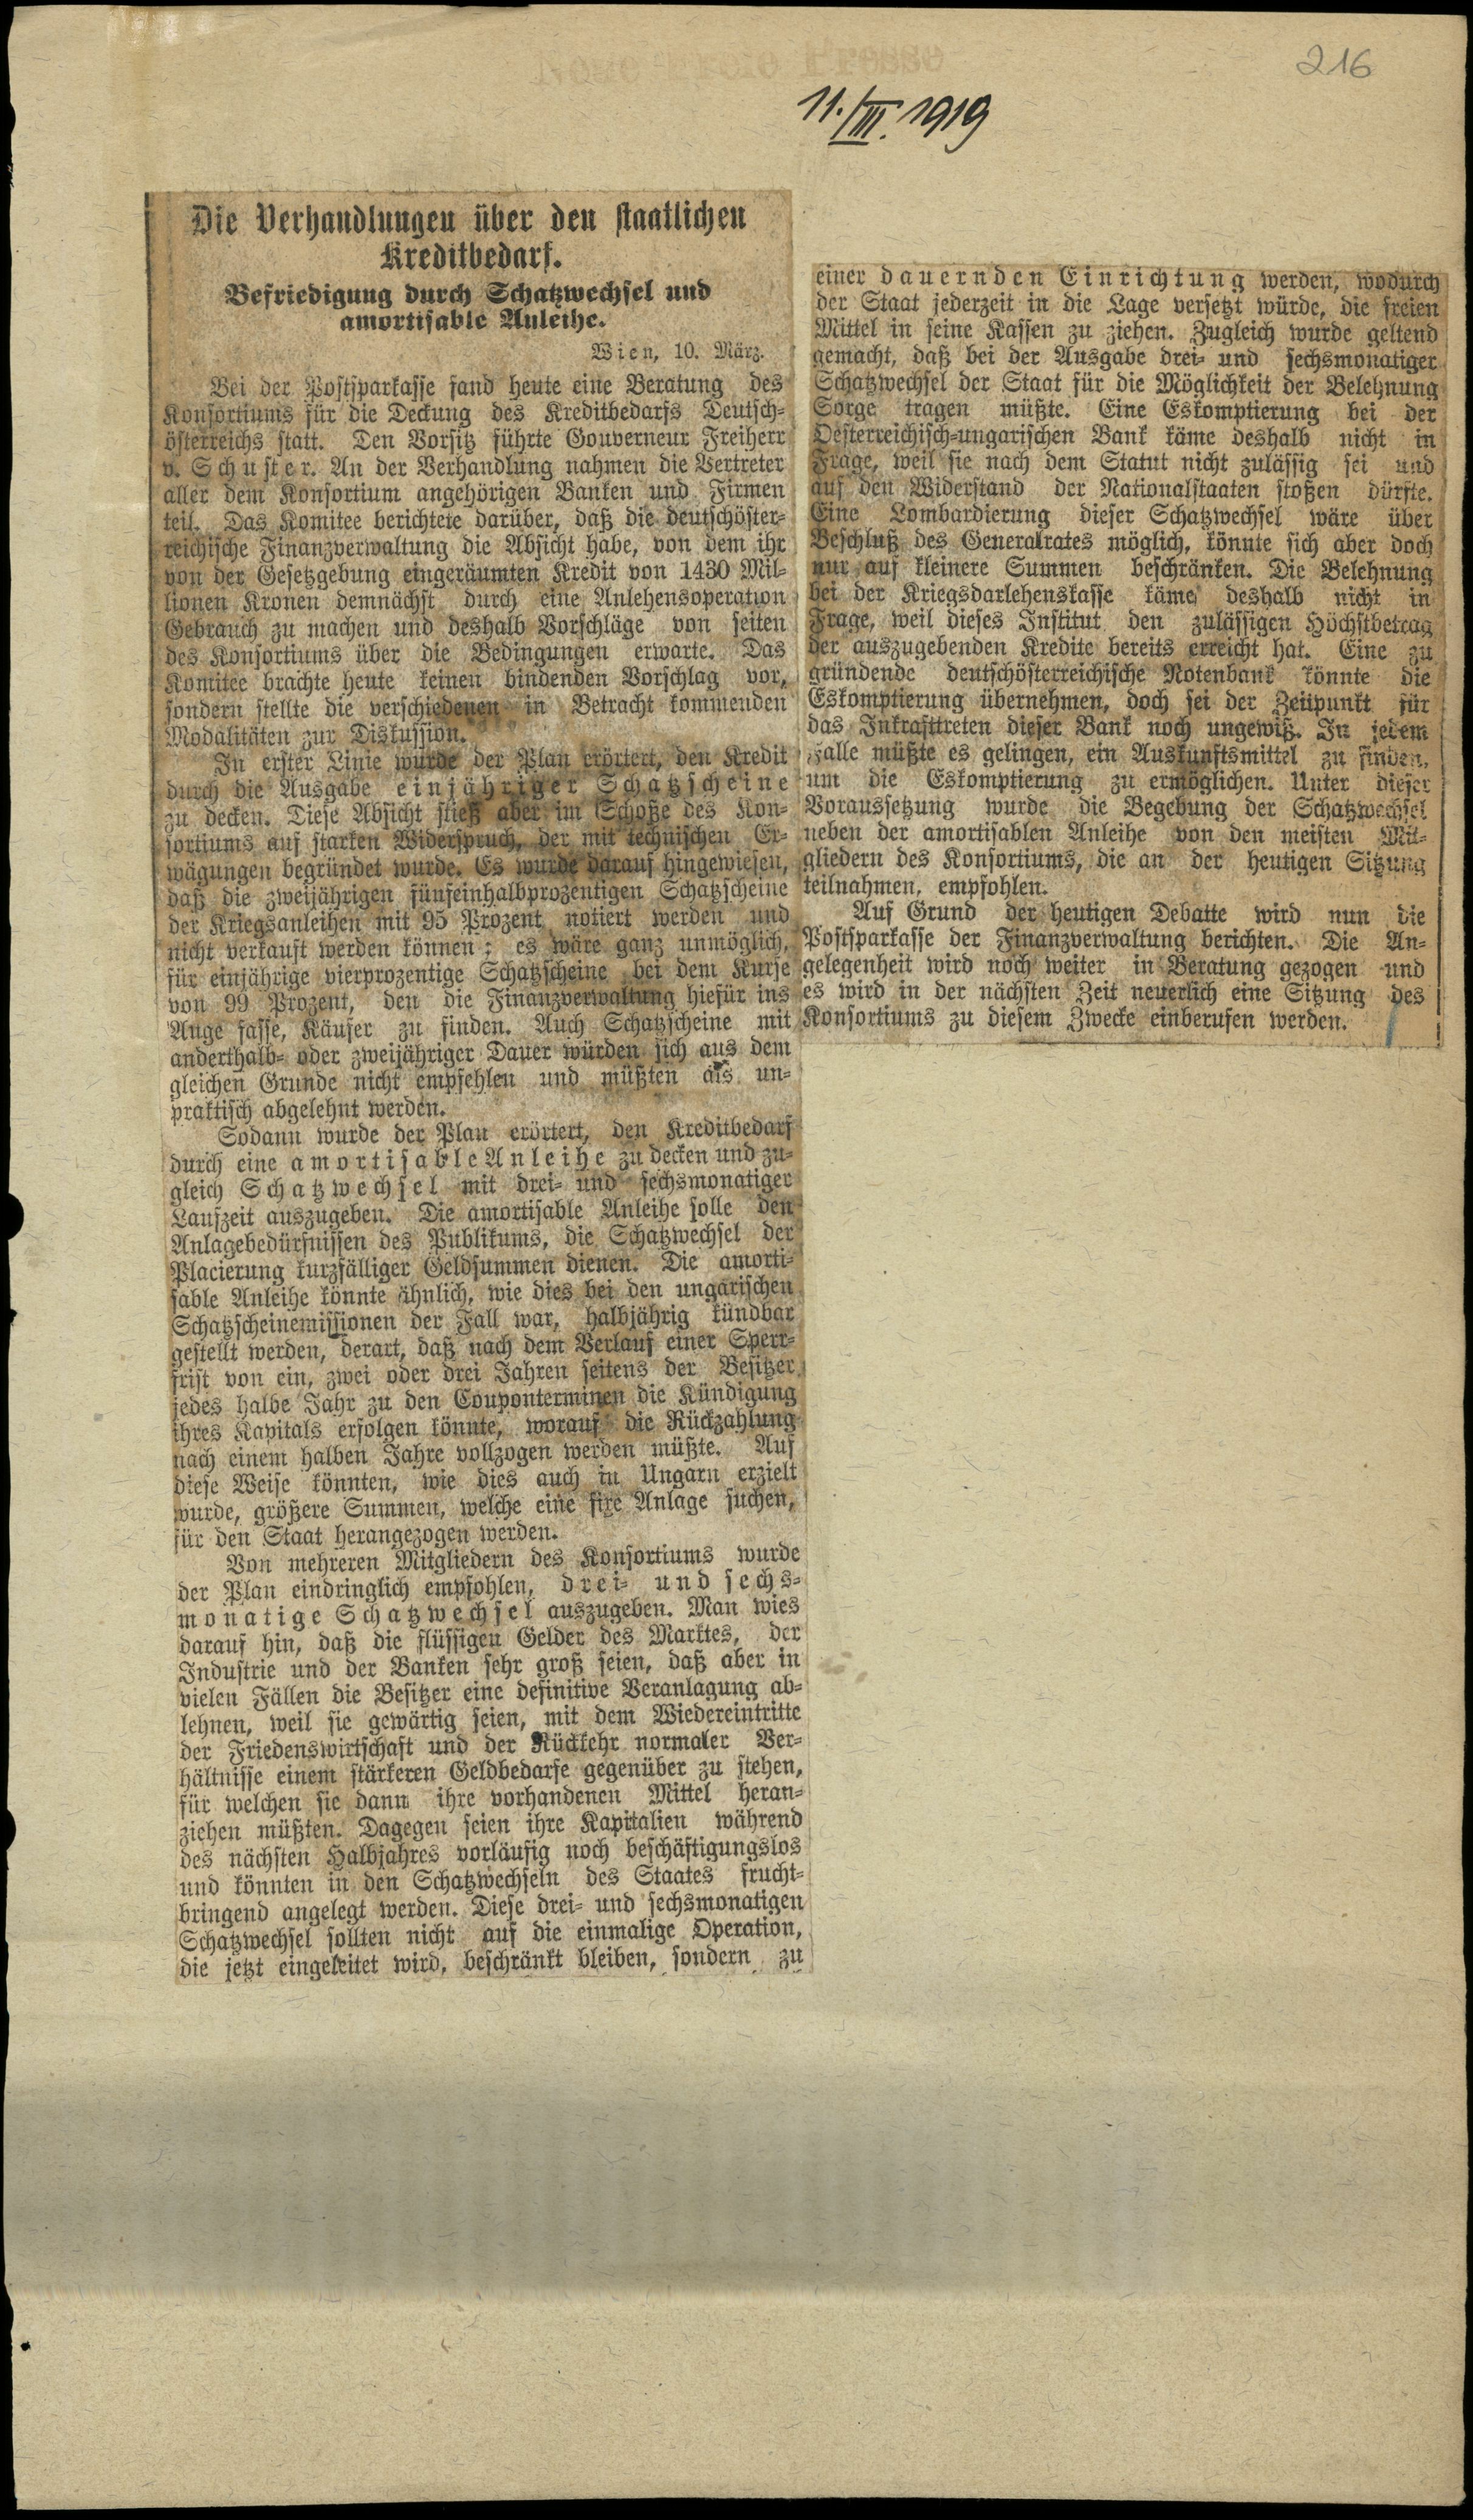 Neue Freie Presse
216
11./III. 1919
Die Verhandlungen über den staatlichen
Kreditbedarf.
Befriedigung durch Schatzwechsel und
amortisable Anleihe.
Wien, 10. März.
Bei der Postsparkasse fand heute eine Beratung des
Konsortiums für die Deckung des Kreditbedarfs Deutsch-
österreichs statt. Den Vorsitz führte Gouverneur Freiherr
v. Schuster. An der Verhandlung nahmen die Vertreter
aller dem Konsortium angehörigen Banken und Firmen
teil. Das Komitee berichtete darüber, daß die deutschöster-
reichische Finanzverwaltung die Absicht habe, von dem ihr
von der Gesetzgebung eingeräumten Kredit von 1430 Mil-
lionen Kronen demnächst durch eine Anlehensoperation
Gebrauch zu machen und deshalb Vorschläge von seiten
des Konsortiums über die Bedingungen erwarte. Das
Komitee brachte heute keinen bindenden Vorschlag vor,
sondern stellte die verschiedenen in Betracht kommenden
Modalitäten zur Diskussion.
In erster Linie wurde der Plan erörtert, den Kredit
durch die Ausgabe einjähriger Schatzscheine
zu decken. Diese Absicht stieß aber im Schoße des Kon-
sortiums auf starken Widerspruch, der mit technischen Er-
wägungen begründet wurde. Es wurde darauf hingewiesen,
daß die zweijährigen fünfeinhalbprozentigen Schatzscheine
der Kriegsanleihen mit 95 Prozent notiert werden und
nicht verkauft werden können; es wäre ganz unmöglich,
für einjährige vierprozentige Schatzscheine bei dem Kurse
von 99 Prozent, den die Finanzverwaltung hiefür ins
Auge fasse, Käufer zu finden. Auch Schatzscheine mit
anderthalb- oder zweijähriger Dauer würden sich aus dem
gleichen Grunde nicht empfehlen und müßten als un-
praktisch abgelehnt werden.
Sodann wurde der Plan erörtert, den Kreditbedarf
durch eine amortisable Anleihe zu decken und zu-
gleich Schatzwechsel mit drei- und sechsmonatiger
Laufzeit auszugeben. Die amortisable Anleihe solle den
Anlagebedürfnissen des Publikums, die Schatzwechsel der
Placierung kurzfälliger Geldsummen dienen. Die amorti-
sable Anleihe könnte ähnlich, wie dies bei den ungarischen
Schatzscheinemissionen der Fall war, halbjährig kündbar
gestellt werden, derart, daß nach dem Verlauf einer Sperr-
frist von ein, zwei oder drei Jahren seitens der Besitzer
jedes halbe Jahr zu den Couponterminen die Kündigung
ihres Kapitals erfolgen könnte, worauf die Rückzahlung
nach einem halben Jahre vollzogen werden müßte. Auf
diese Weise könnten, wie dies auch in Ungarn erzielt
wurde, größere Summen, welche eine fixe Anlage suchen,
für den Staat herangezogen werden.
Von mehreren Mitgliedern des Konsortiums wurde
der Plan eindringlich empfohlen, drei- und sechs-
monatige Schatzwechsel auszugeben. Man wies
darauf hin, daß die flüssigen Gelder des Marktes, der
Industrie und der Banken sehr groß seien, daß aber in
vielen Fällen die Besitzer eine definitive Veranlagung ab-
lehnen, weil sie gewärtig seien, mit dem Wiedereintritte
der Friedenswirtschaft und der Rückkehr normaler Ver-
hältnisse einem stärkeren Geldbedarfe gegenüber zu stehen,
für welchen sie dann ihre vorhandenen Mittel heran-
ziehen müßten. Dagegen seien ihre Kapitalien während
des nächsten Halbjahres vorläufig noch beschäftigungslos
und könnten in den Schatzwechseln des Staates frucht-
bringend angelegt werden. Diese drei- und sechsmonatigen
Schatzwechsel sollten nicht auf die einmalige Operation,
die jetzt eingeleitet wird, beschränkt bleiben, sondern zu
einer dauernden Einrichtung werden, wodurch
der Staat jederzeit in die Lage versetzt würde, die freien
Mittel in seine Kassen zu ziehen. Zugleich wurde geltend
gemacht, daß bei der Ausgabe drei- und sechsmonatiger
Schatzwechsel der Staat für die Möglichkeit der Belehnung
Sorge tragen müßte. Eine Eskomptierung bei der
Oesterreichisch-ungarischen Bank käme deshalb nicht in
Frage, weil sie nach dem Statut nicht zulässig sei und
auf den Widerstand der Nationalstaaten stoßen dürfte.
Eine Lombardierung dieser Schatzwechsel wäre über
Beschluß des Generalrates möglich, könnte sich aber doch
nur auf kleinere Summen beschränken. Die Belehnung
bei der Kriegsdarlehenskasse käme deshalb nicht in
Frage, weil dieses Institut den zulässigen Höchstbetrag
der auszugebenden Kredite bereits erreicht hat. Eine zu
gründende deutschösterreichische Notenbank könnte die
Eskomptierung übernehmen, doch sei der Zeitpunkt für
das Inkrafttreten dieser Bank noch ungewiß. In jedem
Falle müßte es gelingen, ein Auskunftsmittel zu finden,
um die Eskomptierung zu ermöglichen. Unter dieser
Voraussetzung wurde die Begebung der Schatzwechsel
neben der amortisablen Anleihe von den meisten Mit-
gliedern des Konsortiums, die an der heutigen Sitzung
teilnahmen, empfohlen.
Auf Grund der heutigen Debatte wird nun die
Postsparkasse der Finanzverwaltung berichten. Die An-
gelegenheit wird noch weiter in Beratung gezogen und
es wird in der nächsten Zeit neuerlich eine Sitzung des
Konsortiums zu diesem Zwecke einberufen werden.